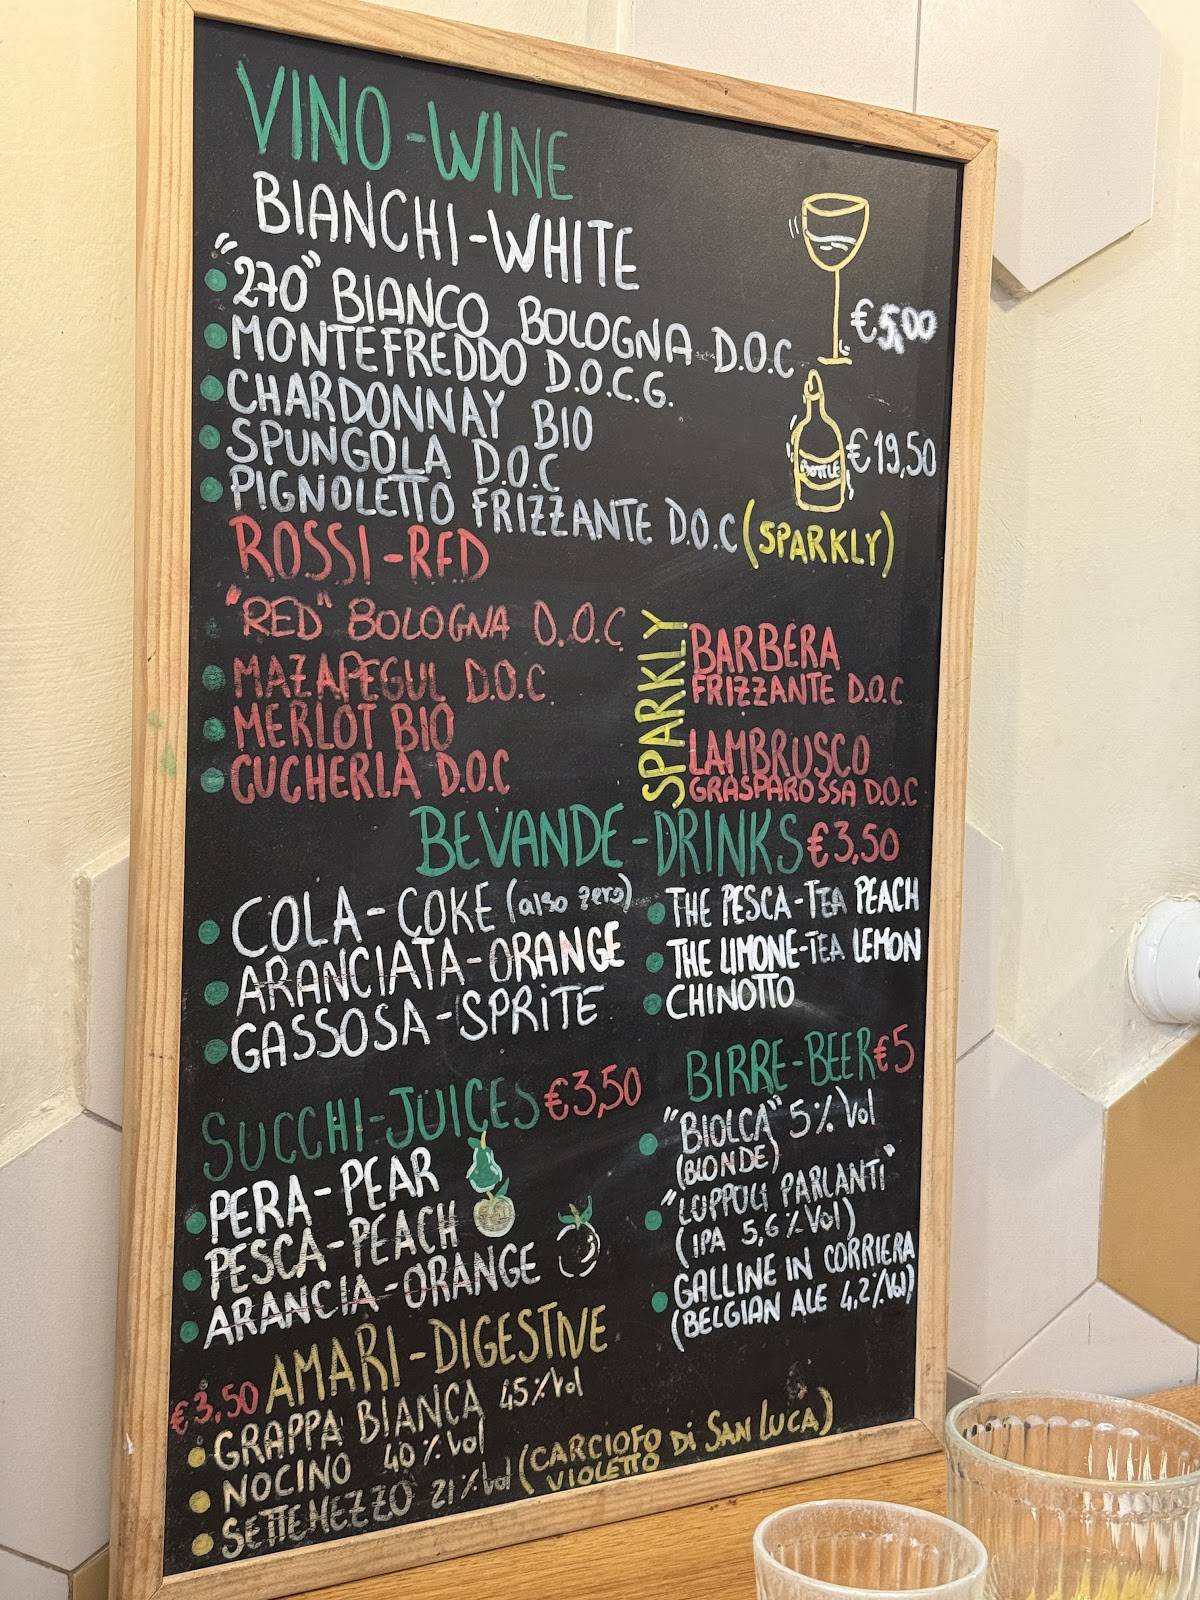 VINO-WINE
BIANCHI-WHITE
"270" BIANCO BOLOGNA D.O.C
MONTEFREDDO D.O.C.G.
CHARDONNAY BIO
SPUNGOLA D.O.C
PIGNOLETTO FRIZZANTE D.O.C (SPARKLY)
€5,00
BOTTLE
€19,50
ROSSI-RED
"RED" BOLOGNA D.O.C
MAZAPEGUL D.O.C
MERLOT BIO
CUCHERLA D.O.C
SPARKLY
BARBERA
FRIZZANTE D.O.C
LAMBRUSCO
GRASPAROSSA D.O.C
BEVANDE-DRINKS €3,50
COLA-COKE (also zero)
ARANCIATA-ORANGE
GASSOSA-SPRITE
THE PESCA-TEA PEACH
THE LIMONE-TEA LEMON
CHINOTTO
SUCCHI-JUICES €3,50
PERA-PEAR
PESCA-PEACH
ARANCIA-ORANGE
BIRRE-BEER €5
"BIOLCA" 5%Vol
(BLONDE)
"LUPPOLI PARLANTI"
(IPA 5,6%Vol)
GALLINE IN CORRIERA
(BELGIAN ALE 4,2%Vol)
€3.50 AMARI-DIGESTIVE
GRAPPA BIANCA 45%Vol
NOCINO 40%Vol
SETTEMEZZO 21%Vol (CARCIOFO VIOLETTO Di SAN LUCA)